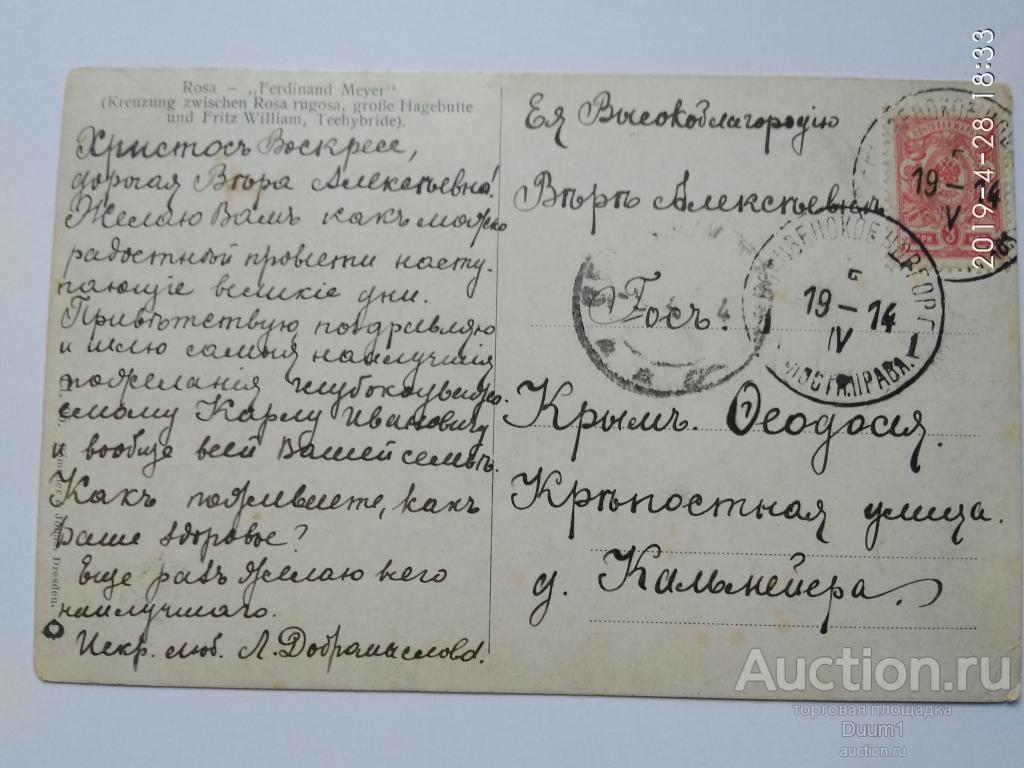 Rosa – „Ferdinand Meyer"
(Kreuzung zwischen Rosa rugosa, große Hagebutte
und Fritz William, Teehybride).
Христосъ Воскресе,
дорогая Вѣра Алексѣевна!
Желаю Вамъ какъ можно
радостнѣй провести насту-
пающіе великіе дни.
Привѣтствую, поздравляю
и шлю самыя наилучшія
пожеланія глубокоуважа-
емому Карлу Ивановичу
и вообще всей Вашей семьѣ.
Какъ поживаете, какъ
Ваше здоровье?
Еще разъ желаю всего
наилучшаго.
Искр. люб. Л. Добромыслова.
Dresden.
Ея Высокоблагородію
Вѣрѣ Алексѣевнѣ
Госъ.
Крымъ. Ѳеодосія.
Крѣпостная улица.
д. Кальмейера.
19 – 14
IV
19 – 14
IV
ПОЧТ.
2019-4-28 18:33
Auction.ru
торговая площадка
Duum1
auction.ru